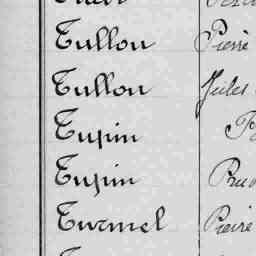 Tullou Pierre
Tullou Jules
Tupin
Tupin
Turmel Pierre